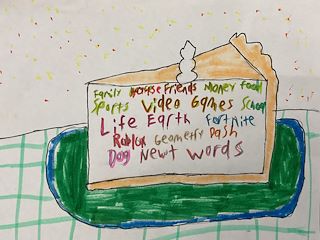 Family Friends Money food
Sports Video Games School
Life Earth Fortnite
Roblox Geometry Dash
Dog Newt words